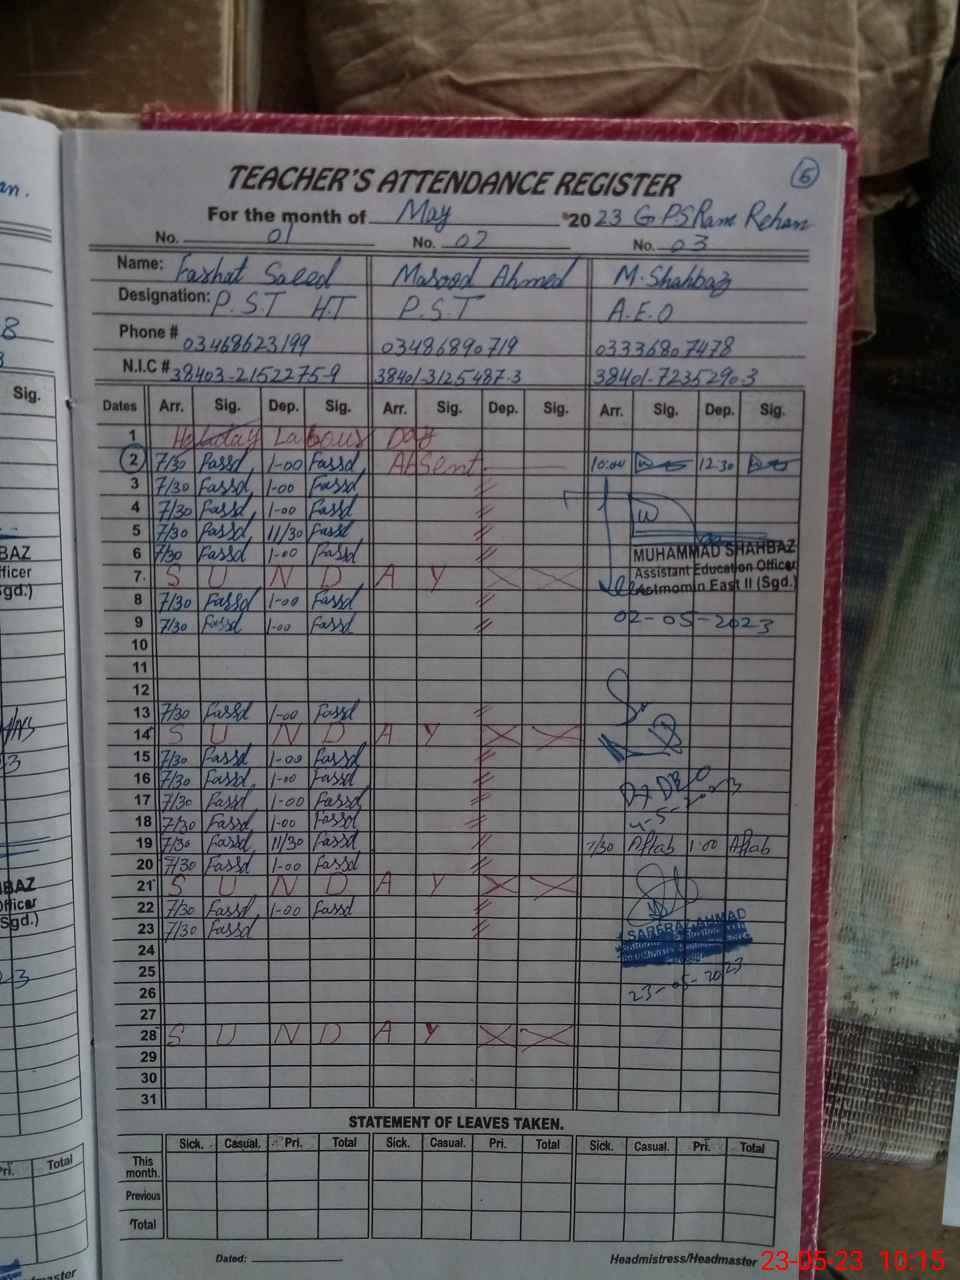 6
TEACHER'S ATTENDANCE REGISTER
For the month of May 2023 G P S Ram Rehan
No. 01 No. 02 No. 03
Name: Farhat Saeed Masood Ahmed M. Shahbaz
Designation: P.S.T H.T P.S.T A.E.O
Phone # 03468623199 03486890719 03336807478
N.I.C # 38403-2152275-9 38401-3125487-3 38401-7235290-3
Dates Arr. Sig. Dep. Sig. Arr. Sig. Dep. Sig. Arr. Sig. Dep. Sig.
1 Holiday Labour Day
2 7/30 Fassd 1-00 Fassd Absent 10:00 12:30
3 7/30 Fassd 1-00 Fassd "
4 7/30 Fassd 1-00 Fassd "
5 7/30 Fassd 11/30 Fassd "
6 7/30 Fassd 1-00 Fassd "
MUHAMMAD SHAHBAZ
7 S U N D A Y
Assistant Education Officer
8 7/30 Fassd 1-00 Fassd "
East II (Sgd.)
9 7/30 Fassd 1-00 Fassd "
02-05-2023
10
11
12
13 7/30 Fassd 1-00 Fassd "
14 S U N D A Y
15 7/30 Fassd 1-00 Fassd "
16 7/30 Fassd 1-00 Fassd "
17 7/30 Fassd 1-00 Fassd "
18 7/30 Fassd 1-00 Fassd "
19 7/30 Fassd 11/30 Fassd " 7/30 Aftab 1:00 Aftab
20 7/30 Fassd 1-00 Fassd "
21 S U N D A Y
22 7/30 Fassd 1-00 Fassd "
23 7/30 Fassd "
24
25
26
23-05-2023
27
28 S U N D A Y
29
30
31
STATEMENT OF LEAVES TAKEN.
Sick. Casual. Pri. Total Sick. Casual. Pri. Total Sick. Casual. Pri. Total
This month.
Previous
Total
Dated: Headmistress/Headmaster
23-05-23 10:15
Sig.
BAZ
fficer
gd.)
BAZ
Officer
Sgd.)
Pri. Total